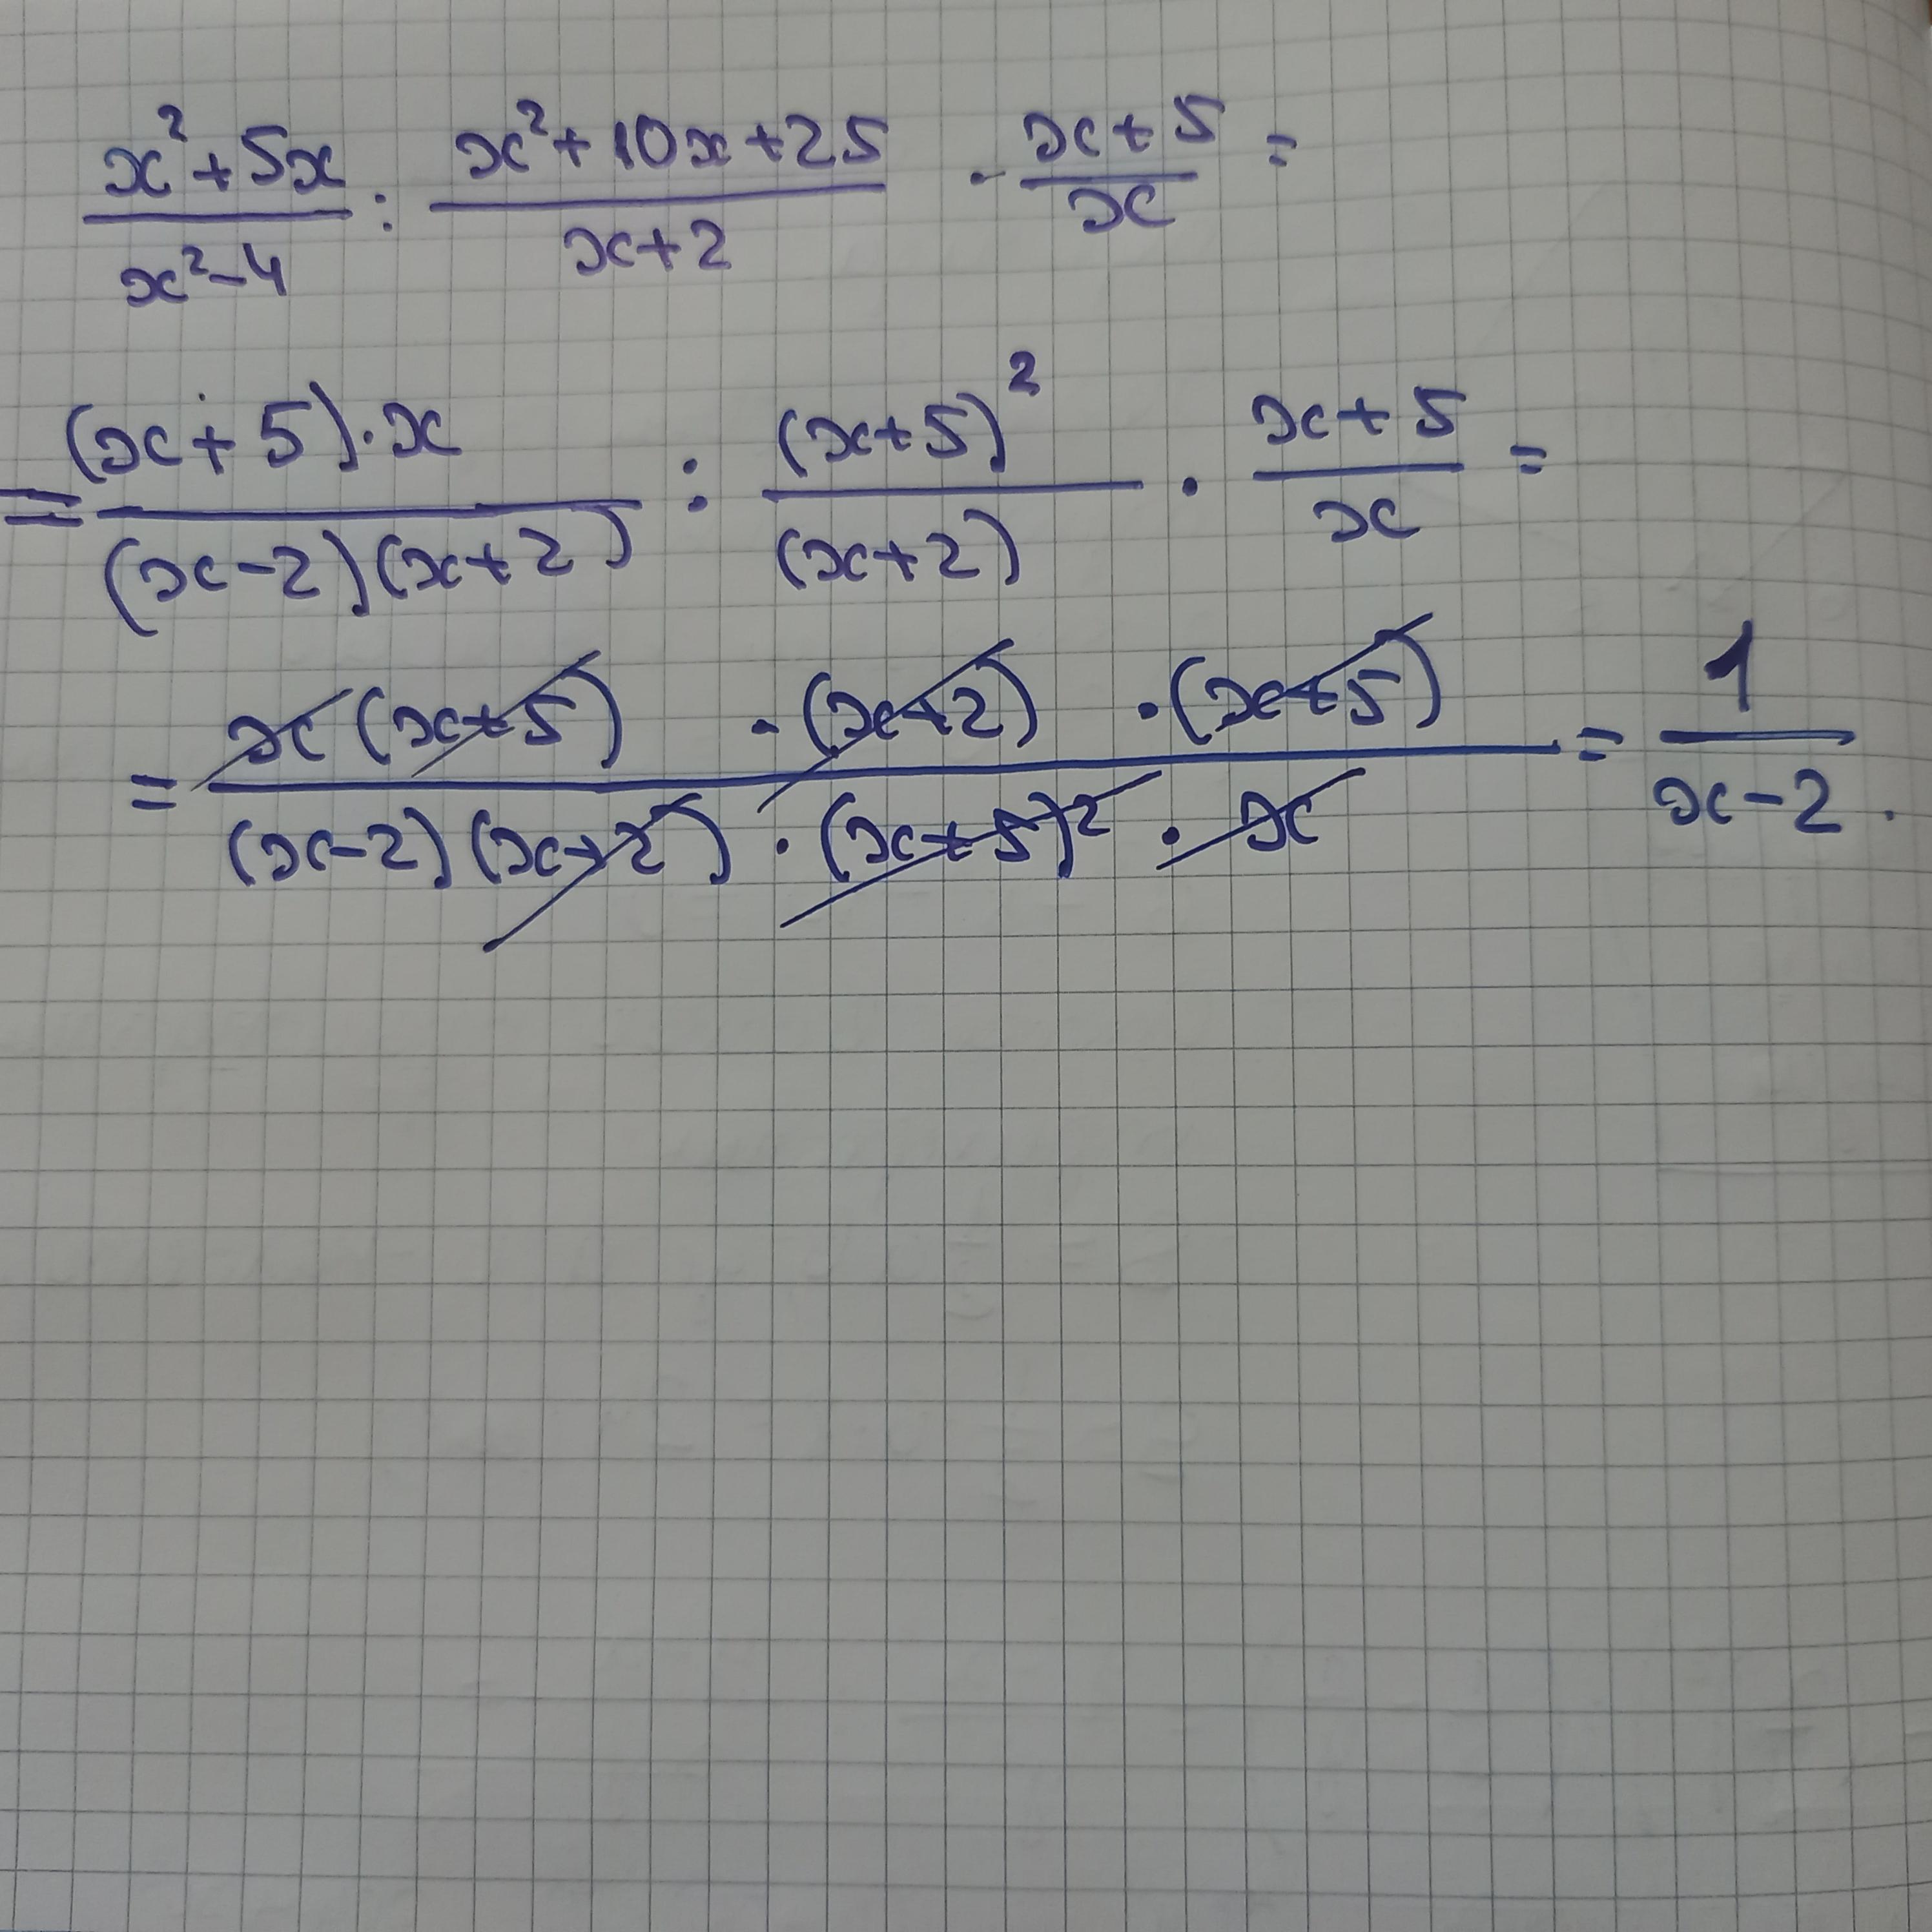 (x²+5x)/(x²-4) : (x²+10x+25)/(x+2) · (x+5)/x =
= ((x+5)·x)/((x-2)(x+2)) : (x+5)²/(x+2) · (x+5)/x =
= (x(x+5)·(x+2)·(x+5))/((x-2)(x+2)·(x+5)²·x) = 1/(x-2).